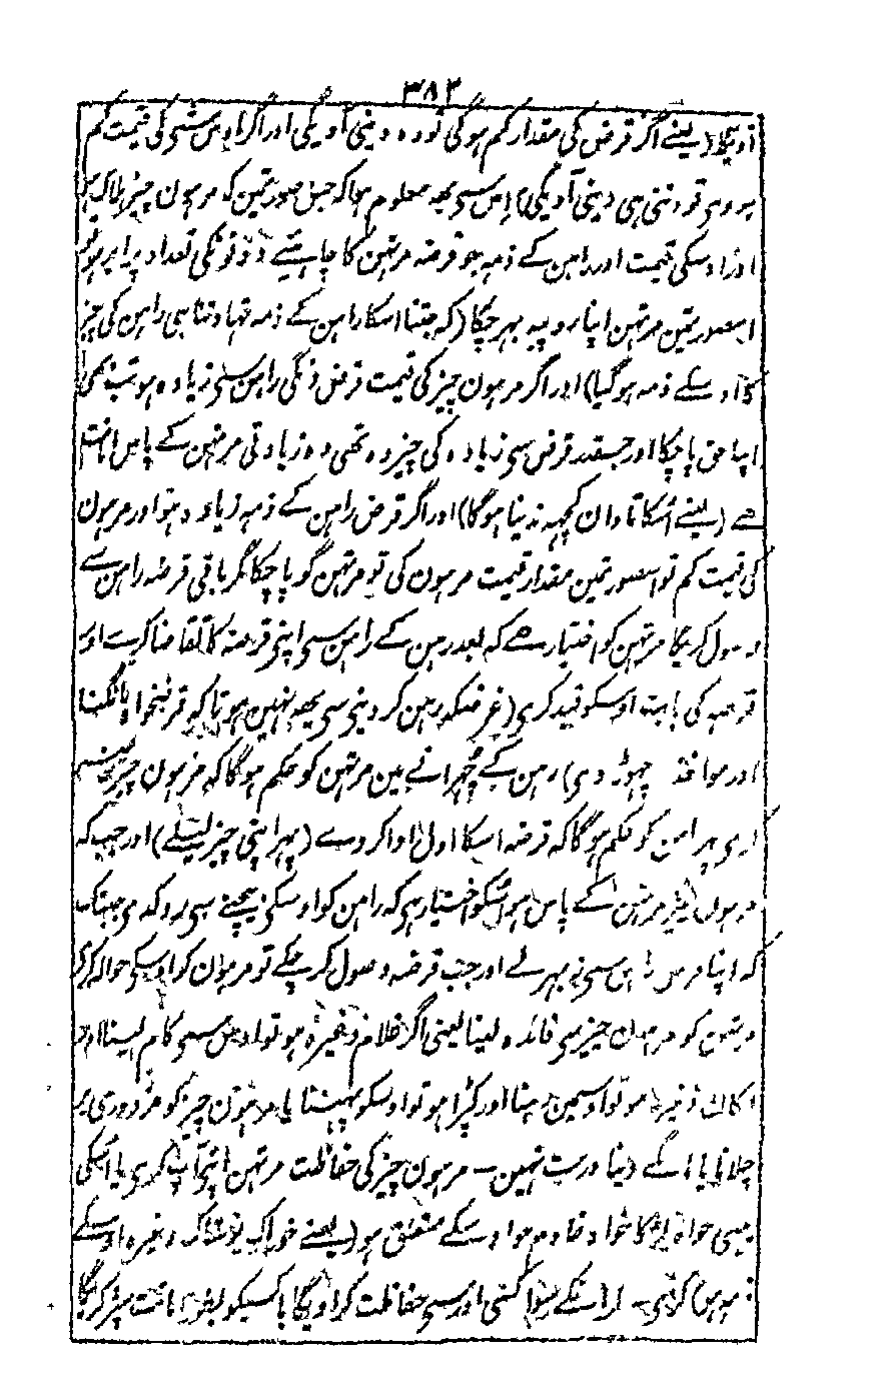 ٣٨٣
(یعنے اگر قرض کی مقدار کم ہوگی تو وہ دینی آویگی اور اگر اوس شی کی قیمت کم
ہووی تو وتنی ہی دینی آویگی) اس سی یہہ معلوم ہوا کہ جس صورتمین کہ مرہون چیز ہلاک ہو
اور اوسکی قیمت اور راہن کے ذمہ جو قرضہ مرتہن کا چاہئیے دونونکی تعداد برابر ہو تو
اسصورتمین مرتہن اپنا روپیہ بہر چکا (کہ جتنا اسکا راہن کے ذمہ تہا وتنا ہی راہن کی چیز
کا اوسکے ذمہ ہوگیا) اور اگر مرہون چیز کی قیمت قرض ذگی راہن سی زیادہ ہو تب بھی
اپنا حق پا چکا اور جسقدر قرض سی زیادہ کی چیز وہ تھی وہ زیادتی مرتہن کے پاس امانت
ہے (یعنے اسکا تاوان کچہہ ندینا ہوگا) اور اگر قرض راہن کے ذمہ زیادہ ہو اور مرہون
کی قیمت کم تو اسصورتمین مقدار قیمت مرہون کی تو مرتہن گویا پا چکا مگر باقی قرضہ راہن سے
وصول کریگا مرتہن کو اختیار ہے کہ بعد رہن کے راہن سی اپنی قرضہ کا تقاضا کرے اور
قرضہ کی بابت اوسکو قید کری (غرضکہ رہن کر دینی سی یہہ نہین ہوتا کہ قرضخواہ مانگنا
اور مواخذہ چہوڑ دی) رہن کے چُہرانے مین مرتہن کو حکم ہوگا کہ مرہون چیز
کری پہر راہن کو حکم ہوگا کہ قرضہ اسکا اول ادا کر دے (پہر اپنی چیز لیلے) اور جب کہ
مرہون چیز مرتہن کے پاس ہو اسکو اختیار ہی کہ راہن کو اوسکی بیچنے سی روکدی جبتک
کہ اپنا قرض راہن سی نہ بہر لے اور جب قرضہ وصول کر چکے تو مرہون کو اوسکی حوالہ کری
مرتہن کو مرہون چیز سی فائدہ لینا یعنی اگر غلام وغیرہ ہو تو اوس سی کام لینا اور
مکان وغیرہ ہو تو اوسمین رہنا اور کپڑا ہو تو اوسکو پہننا یا مرہون چیز کو مزدوری پر
چلانا یا مانگے دینا درست نہین - مرہون چیز کی حفاظت مرتہن اپنی آپ کری یا اسکی
بیبی خواہ لڑکا خواہ خادم جو اوسکے متعلق ہو (یعنے خوراک پوشاک وغیرہ اوسکے
ذمہ ہو) کری - اور اگر انکے سوا کسی اور سی حفاظت کراویگا یا کسیکو بطور امانت سپرد کریگا